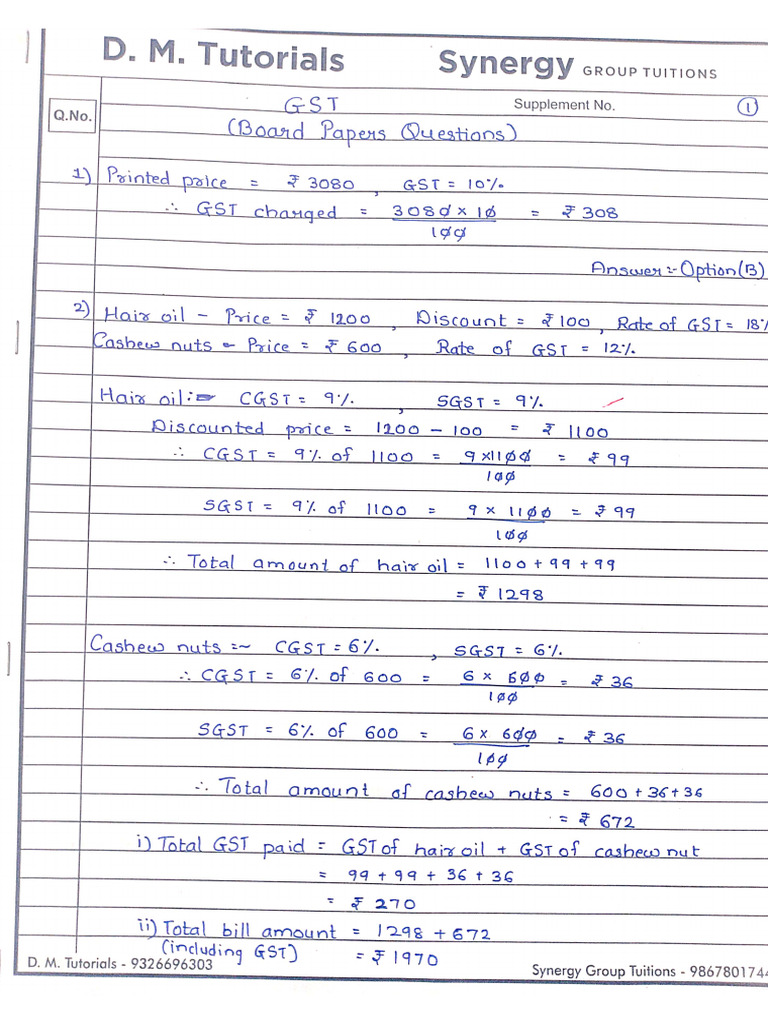 D. M. Tutorials Synergy GROUP TUITIONS
Q.No. GST Supplement No. 1
(Board Papers Questions)
1) Printed price = ₹ 3080 , GST = 10%
∴ GST charged = 3080 × 10 / 100 = ₹ 308
Answer:- Option (B)
2) Hair oil - Price = ₹ 1200 , Discount = ₹ 100 , Rate of GST = 18%
Cashew nuts - Price = ₹ 600 , Rate of GST = 12%
Hair oil:- CGST = 9% , SGST = 9%
Discounted price = 1200 - 100 = ₹ 1100
∴ CGST = 9% of 1100 = 9 × 1100 / 100 = ₹ 99
SGST = 9% of 1100 = 9 × 1100 / 100 = ₹ 99
∴ Total amount of hair oil = 1100 + 99 + 99
= ₹ 1298
Cashew nuts :- CGST = 6% , SGST = 6%
∴ CGST = 6% of 600 = 6 × 600 / 100 = ₹ 36
SGST = 6% of 600 = 6 × 600 / 100 = ₹ 36
∴ Total amount of cashew nuts = 600 + 36 + 36
= ₹ 672
i) Total GST paid = GST of hair oil + GST of cashew nut
= 99 + 99 + 36 + 36
= ₹ 270
ii) Total bill amount = 1298 + 672
(including GST) = ₹ 1970
D. M. Tutorials - 9326696303 Synergy Group Tuitions - 9867801744